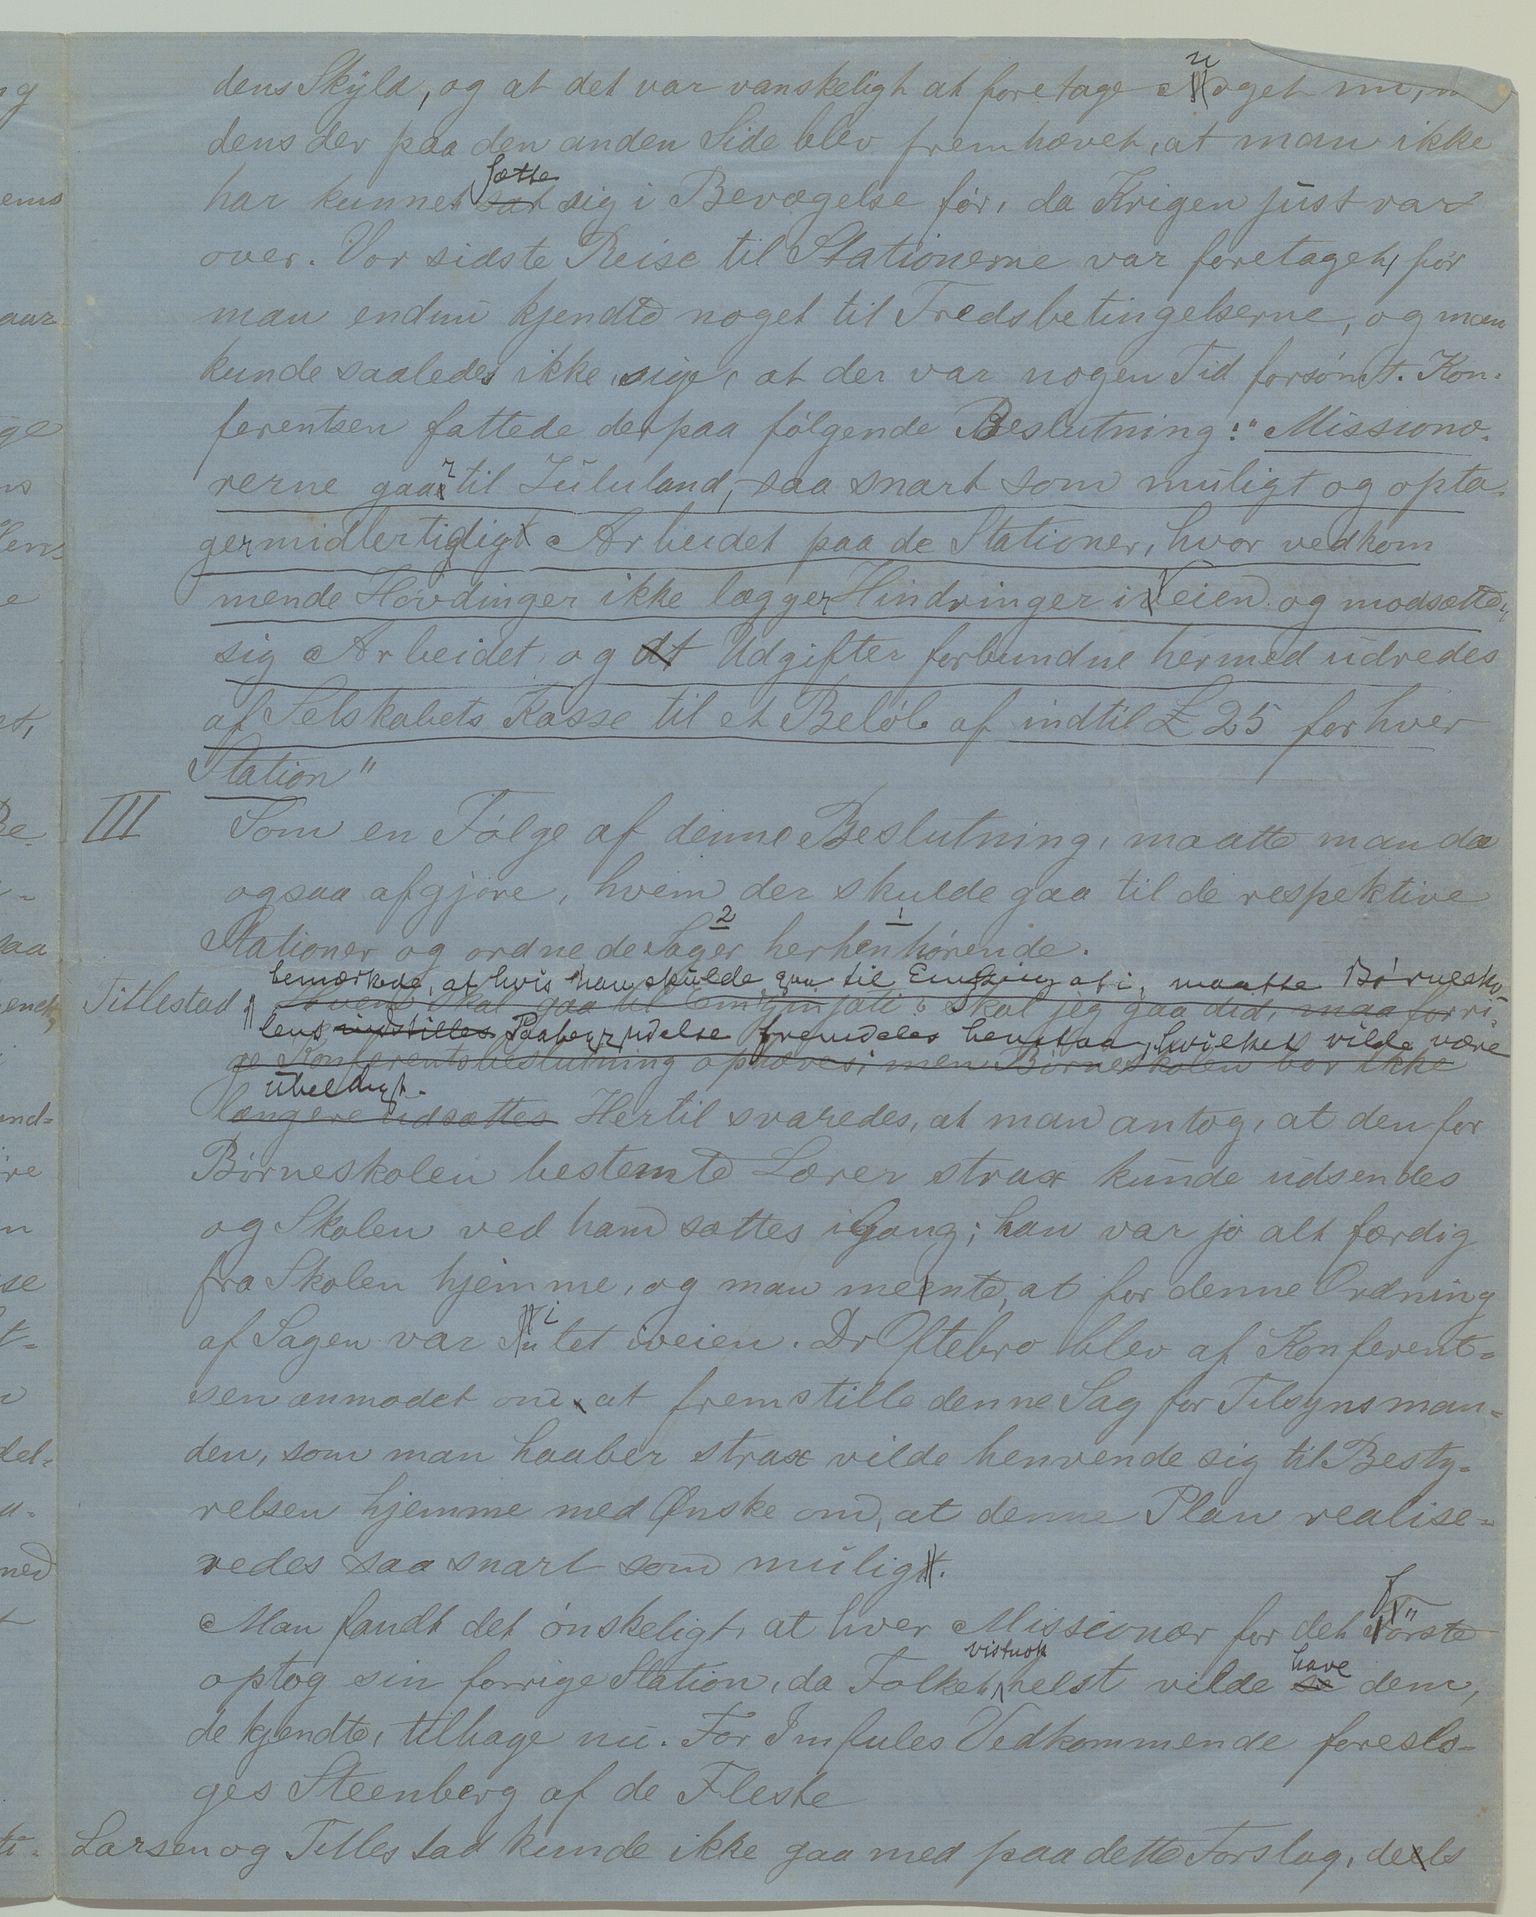 dens Skÿld, og at det var vanskeligt at foretage noget nu,
dens der paa den anden Side blev fremhævet, at man ikke
har kunnet sætte sig i Bevægelse før, da Krigen just var
over. Vor sidste Reise til Stationerne var foretaget, før
man endnu kjendte noget til Fredsbetingelserne, og man
kunde saaledes ikke sige, at der var nogen Tid forsømt. Kon-
ferentsen fattede derpaa følgende Beslutning: "Missionæ-
rerne gaar til Zululand, saa snart som muligt og opta-
ger midlertidig Arbeidet paa de Stationer, hvor vedkom
mende Høvdinger ikke lægger Hindringer i Veien og modsætte
sig Arbeidet, og at Udgifter forbundne hermed udredes
af Selskabets Kasse til et Beløb af indtil £ 25 for hver
Station"
III Som en Følge af denne Beslutning, maatte man da
ogsaa afgjøre, hvem der skulde gaa til de respektive
2 1
Stationer og ordne de Sager herhenhørende.
bemærkede, at hvis han skulde gaa til Emzinjati, maatte Børnesko-
Titlestad skal gaa til Emzinjati? Skal jeg gaa did, maa forri-
lens indstilles Paabegyndelse fremdeles henstaa, hvilket vilde være
ge Konferentsbeslutning ophæves; men Børneskolen bør ikke
ubeldigt.
længere udsættes Hertil svaredes, at man antog, at den for
Børneskolen bestemte Lærer strax kunde udsendes
og Skolen ved ham sættes i Gang; han var jo alt færdig
fra Skolen hjemme, og man mente, at for denne Ordning
af Sagen var Intet iveien. Dr Oftebro blev af Konferent-
sen anmodet om at fremstille denne Sag for Tilsynsman-
den, som man haaber strax vilde henvende sig til Besty-
relsen hjemme med Ønske om, at denne Plan realise-
redes saa snart som mulig.
Man fandt det ønskeligt, at hver Missionær for det første
optog sin forrige Station, da Folket vistnok helst vilde have dem,
de kjendte, tilbage nu. For Imfules Vedkommende foreslo-
ges Steenberg af de Fleste
Larsen og Titlestad kunde ikke gaa med paa dette Forslag, dels